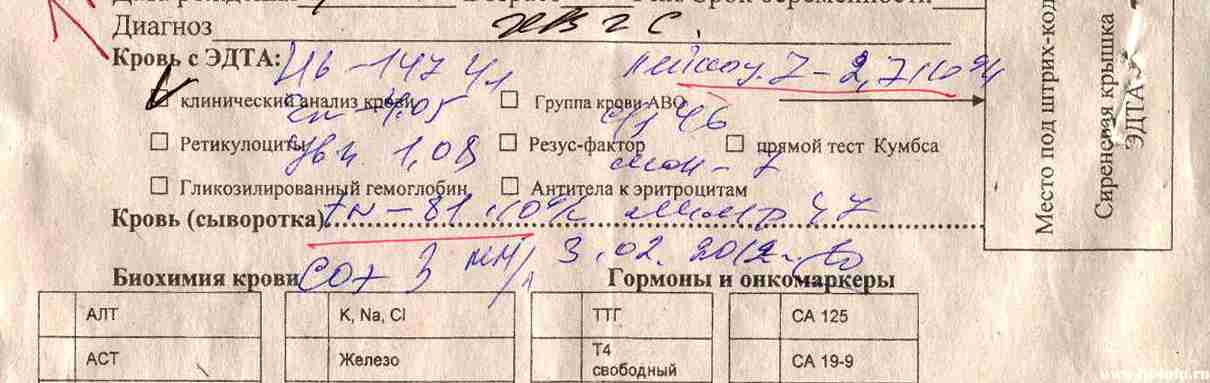 Диагноз ХВГС.
Кровь с ЭДТА: Hb - 147 г/л лейкоц. 7 - 2,7 х 10⁹/л
клинический анализ крови Группа крови АВО
Эр - 4.05 с/я 46
Ретикулоциты Резус-фактор прямой тест Кумбса
Цв п 1,08 мон - 7
Гликозилированный гемоглобин Антитела к эритроцитам
Кровь (сыворотка) Тр - 81 х 10⁹/л лимф 47
СОЭ 3 мм/ 3.02.2012
Биохимия крови Гормоны и онкомаркеры
АЛТ K, Na, Cl ТТГ CA 125
АСТ Железо Т4 свободный CA 19-9
Место под штрих-код
Сиреневая крышка
ЭДТА